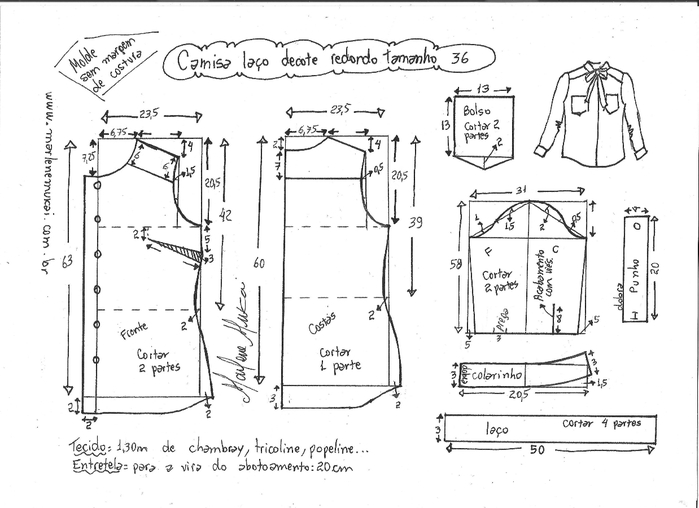 Molde
sem margem
de costura
Camisa laço decote redondo tamanho 36
www.marlenemukai.com.br
23,5
6,75
7,25
6
6
4
1,5
20,5
42
2
5
3
63
2
Frente
Cortar
2 partes
2
2
2
Marlene Mukai
23,5
6,75
2
7
4
0,5
20,5
39
60
2
Costas
Cortar
1 parte
3
2
13
13
Bolso
Cortar 2
partes
2
31
1
1,5
2
0,5
58
F
C
Cortar
2 partes
Acabamento
com viés
Prega
3
8
5
5
4
dobra
Punho
20
3
colarinho
3
1,5
20,5
3
laço
Cortar 4 partes
50
Tecido: 1,30m de chambray, tricoline, popeline...
Entretela= para a vira do abotoamento: 20cm